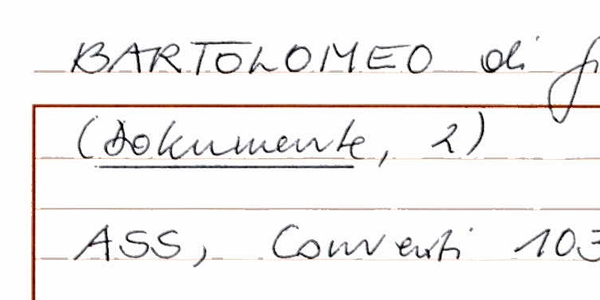 BARTOLOMEO di
(Dokumente, 2)
ASS, Conventi 103